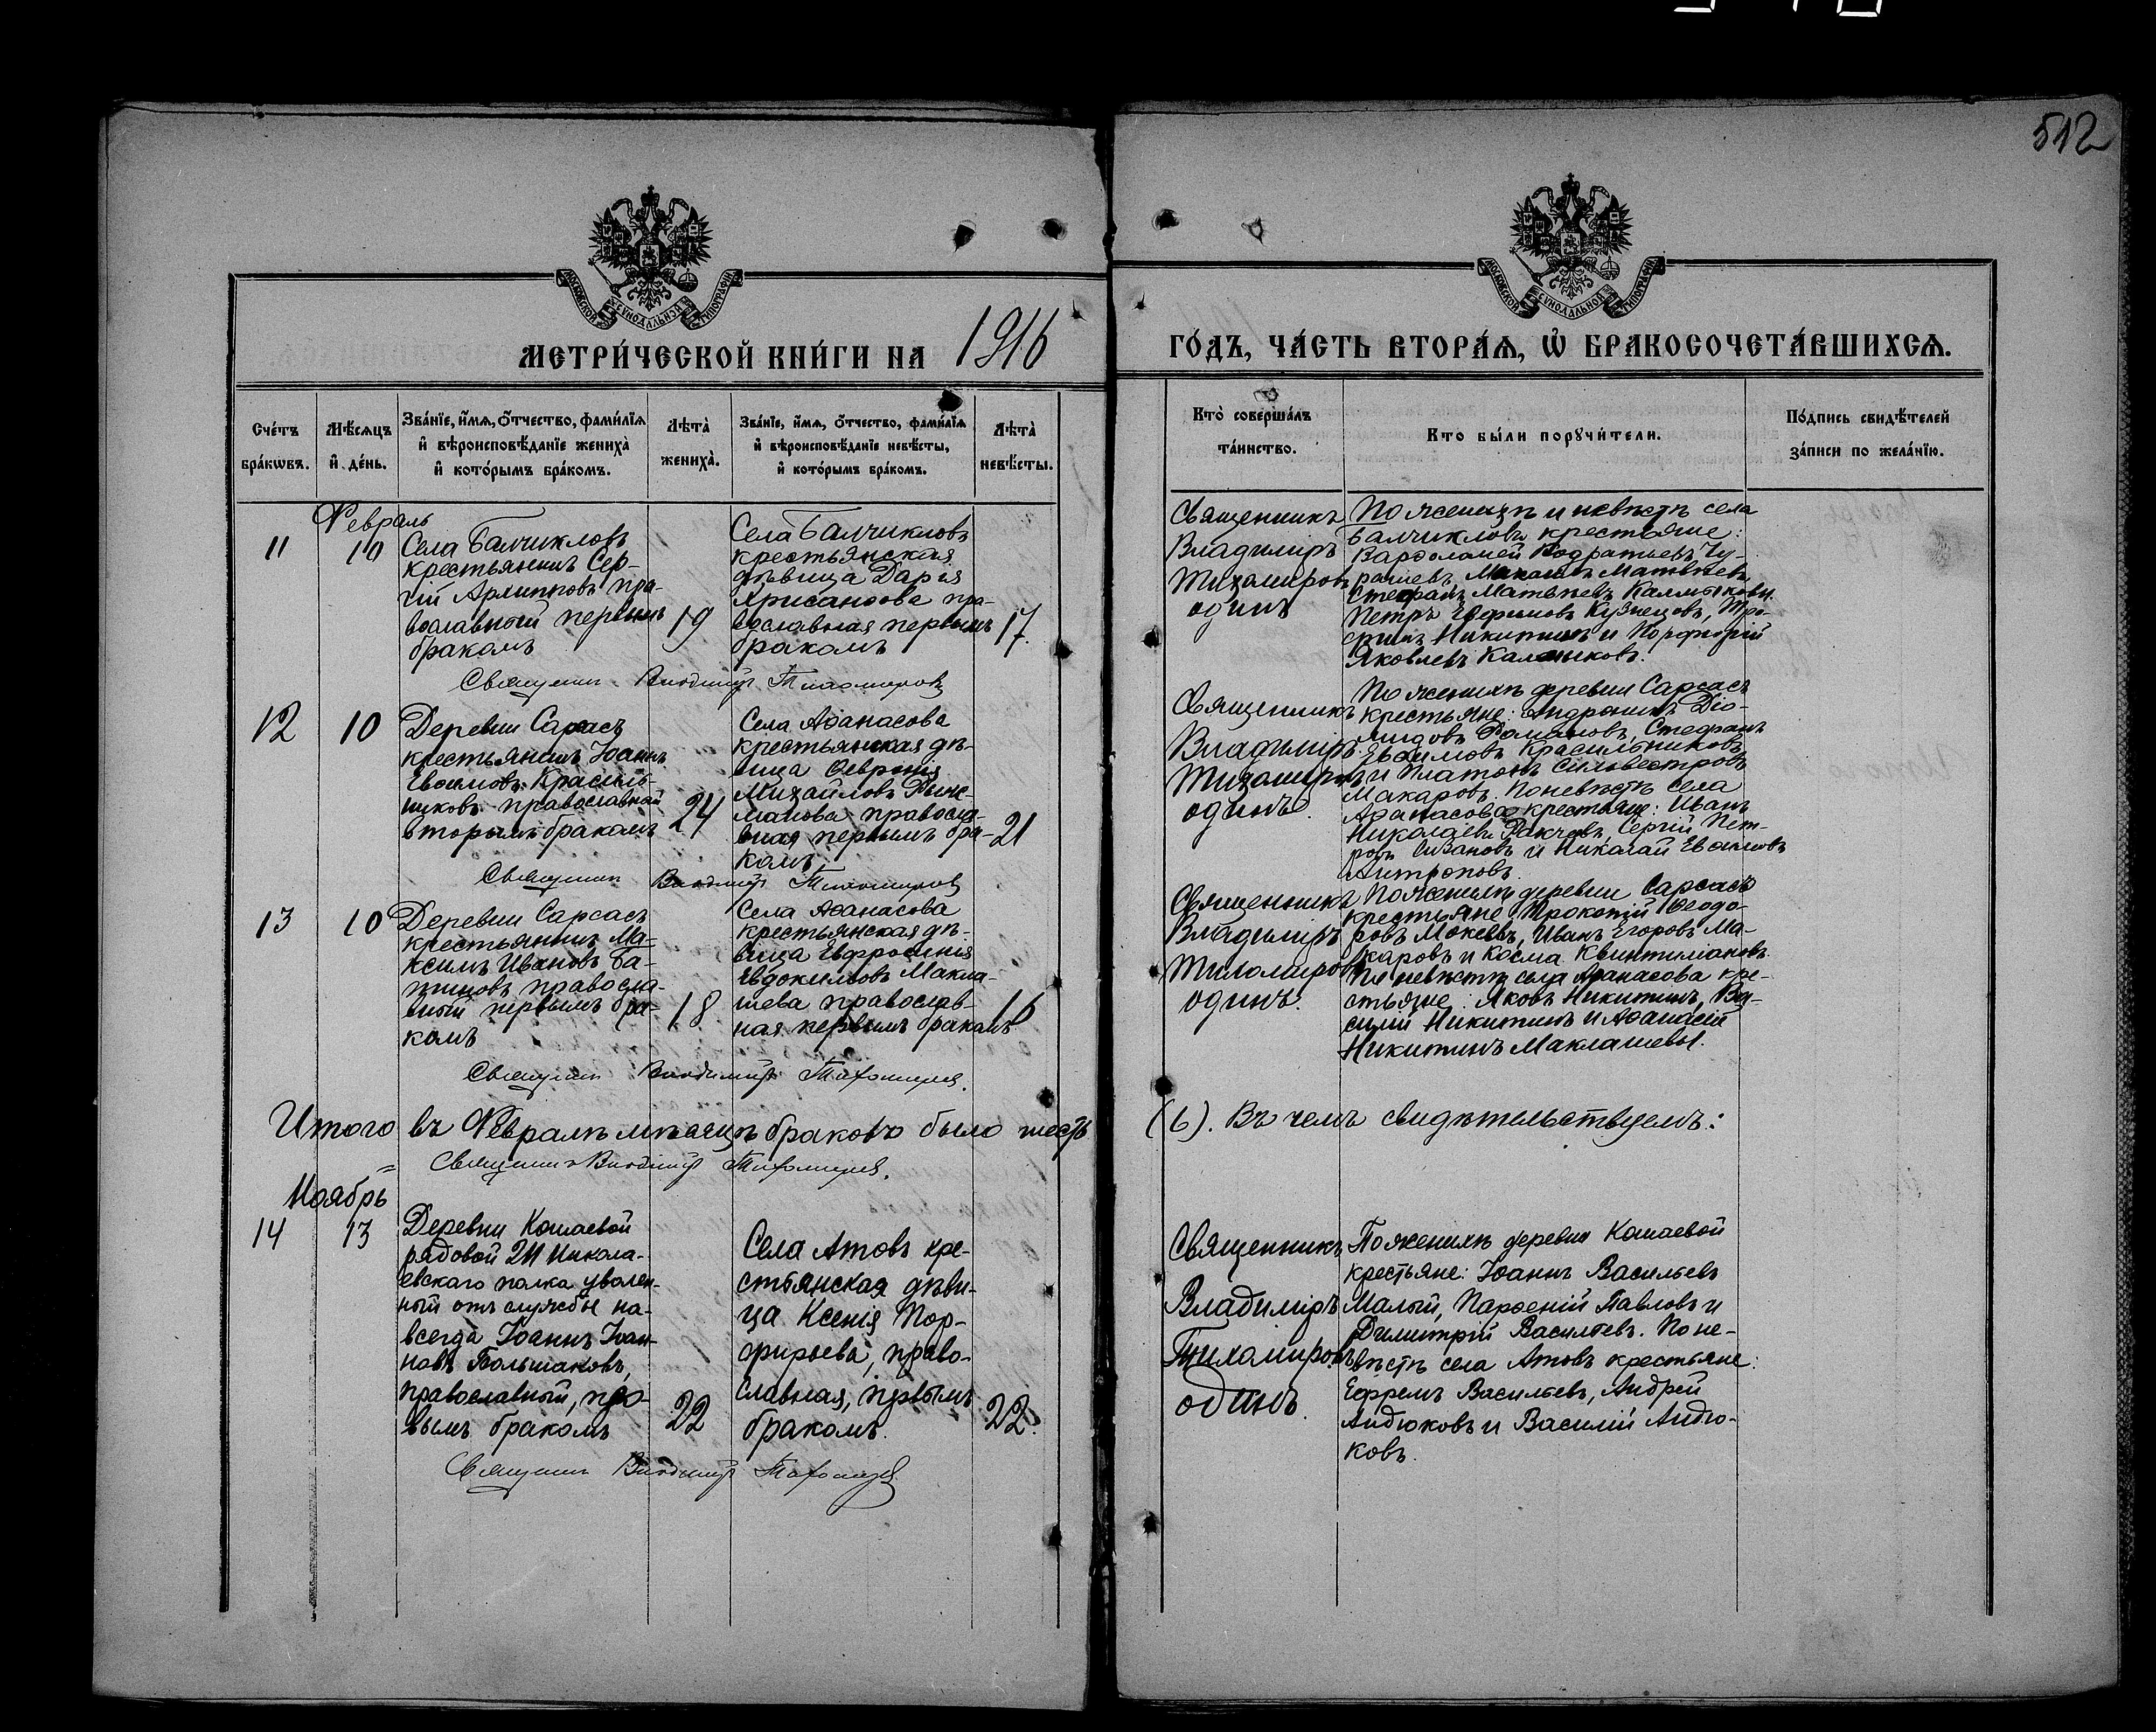 512
МОСКОВСКОЙ СѴНОДАЛЬНОЙ ТИПОГРАФІИ
МОСКОВСКОЙ СѴНОДАЛЬНОЙ ТИПОГРАФІИ
МЕТРИ́ЧЕСКОЙ КНИ́ГИ НА 1916
ГО́ДЪ, ЧА́СТЬ ВТОРА́Ѧ, Ѽ БРАКОСОЧЕТА́ВШИХСѦ.
Сче́тъ
бра́кѡвъ.
Мѣ́сѧцъ
и҆ де́нь.
Зва́нїе, и҆́мѧ, ѻ҆́тчество, фами́лїѧ
и҆ вѣроисповѣ́данїе жениха̀
и҆ кото́рымъ бра́комъ.
Лѣ́та
жениха̀.
Зва́нїе, и҆́мѧ, ѻ҆́тчество, фами́лїѧ
и҆ вѣроисповѣ́данїе невѣ́сты,
и҆ кото́рымъ бра́комъ.
Лѣ́та
невѣ́сты.
Кто̀ соверша́лъ
та́инство.
Кто бы́ли порꙋчи́тели.
По́дпись свидѣ́телей
за́писи по жела́нїю.
Февраль
11
10
Села Балчикловъ
крестьянинъ Сер-
гій Архипповъ пра-
вославный первымъ
бракомъ
19
Села Балчикловъ
крестьянская
дѣвица Дарья
Хрисанѳова пра-
вославная первымъ
бракомъ
17.
Священникъ
Владиміръ
Тихомировъ
одинъ
По женихѣ и невѣстѣ села
Балчикловъ крестьяне:
Варѳоломей Кодратьевъ Чу-
рашевъ, Матвѣевъ,
Стефанъ Матвѣевъ Калмыковы
Петръ Евфимовъ Кузнецовъ,
Никитинъ и Порфирій
Яковлевъ Калмыковъ.
Священникъ Владиміръ Тихомировъ
12
10
Деревни Сарсасъ
крестьянинъ Іоаннъ
Евѳимовъ Красиль-
никовъ православный
вторымъ бракомъ
24
Села Аѳанасова
крестьянская дѣ-
вица Ѳевронія
Михайловъ
манова правосла-
вная первымъ бра-
комъ
21
Священникъ
Владиміръ
Тихомировъ
одинъ.
По женихѣ деревни Сарсасъ
крестьяне: Андроникъ Діо-
мидовъ Романовъ, Стефанъ
Евѳимовъ Красильниковъ
и Платонъ Сильвестровъ
Макаровъ. По невѣстѣ села
Аѳанасова крестьяне: Иванъ
Николаевъ Сергій Пет-
ровъ Сизановъ и Николай Евѳимовъ
Антроповъ.
Священникъ Владиміръ Тихомировъ
13
10
Деревни Сарсасъ
крестьянинъ Ма-
ксимъ Ивановъ Ба-
шновъ правосла-
вный первымъ бра-
комъ
18
Села Аѳанасова
крестьянская дѣ-
вица Евфросинія
Евдокимовъ Макла-
шева православ-
ная первымъ бракомъ
16
Священникъ
Владиміръ
Тихомировъ
одинъ.
По женихѣ деревни Сарсасъ
крестьяне: Прокопій Ѳеодо-
ровъ Мокеевъ, Иванъ Егоровъ Ма-
каровъ и Косма Квинтиліановъ.
По невѣстѣ села Аѳанасова кре-
стьяне: Яковъ Никитинъ, Ва-
силій Никитинъ и Аѳанасій
Никитинъ Маклашевы.
Священникъ Владиміръ Тихомировъ.
Итого въ Февралѣ мѣсяцѣ браковъ было шесть
(6). Въ чемъ свидѣтельствуемъ:
Священникъ Владиміръ Тихомировъ.
Ноябрь
14
13
Деревни Кошаевой
рядовой 211 Никола-
евскаго полка уволен-
ный отъ службы на-
всегда Іоаннъ Іоан-
новъ Большаковъ,
православный, пер-
вымъ бракомъ
22
Села Атовъ кре-
стьянская дѣви-
ца Ксенія Пор-
фирьева, право-
славная, первымъ
бракомъ.
22.
Священникъ
Владиміръ
Тихомировъ
одинъ.
По женихѣ деревни Кошаевой
крестьяне: Іоаннъ Васильевъ
Малый, Парѳеній Павловъ и
Димитрій Васильевъ. По не-
вѣстѣ села Атовъ крестьяне:
Ефремъ Васильевъ, Андрей
Андюковъ и Василій Андю-
ковъ.
Священникъ Владиміръ Тихомировъ